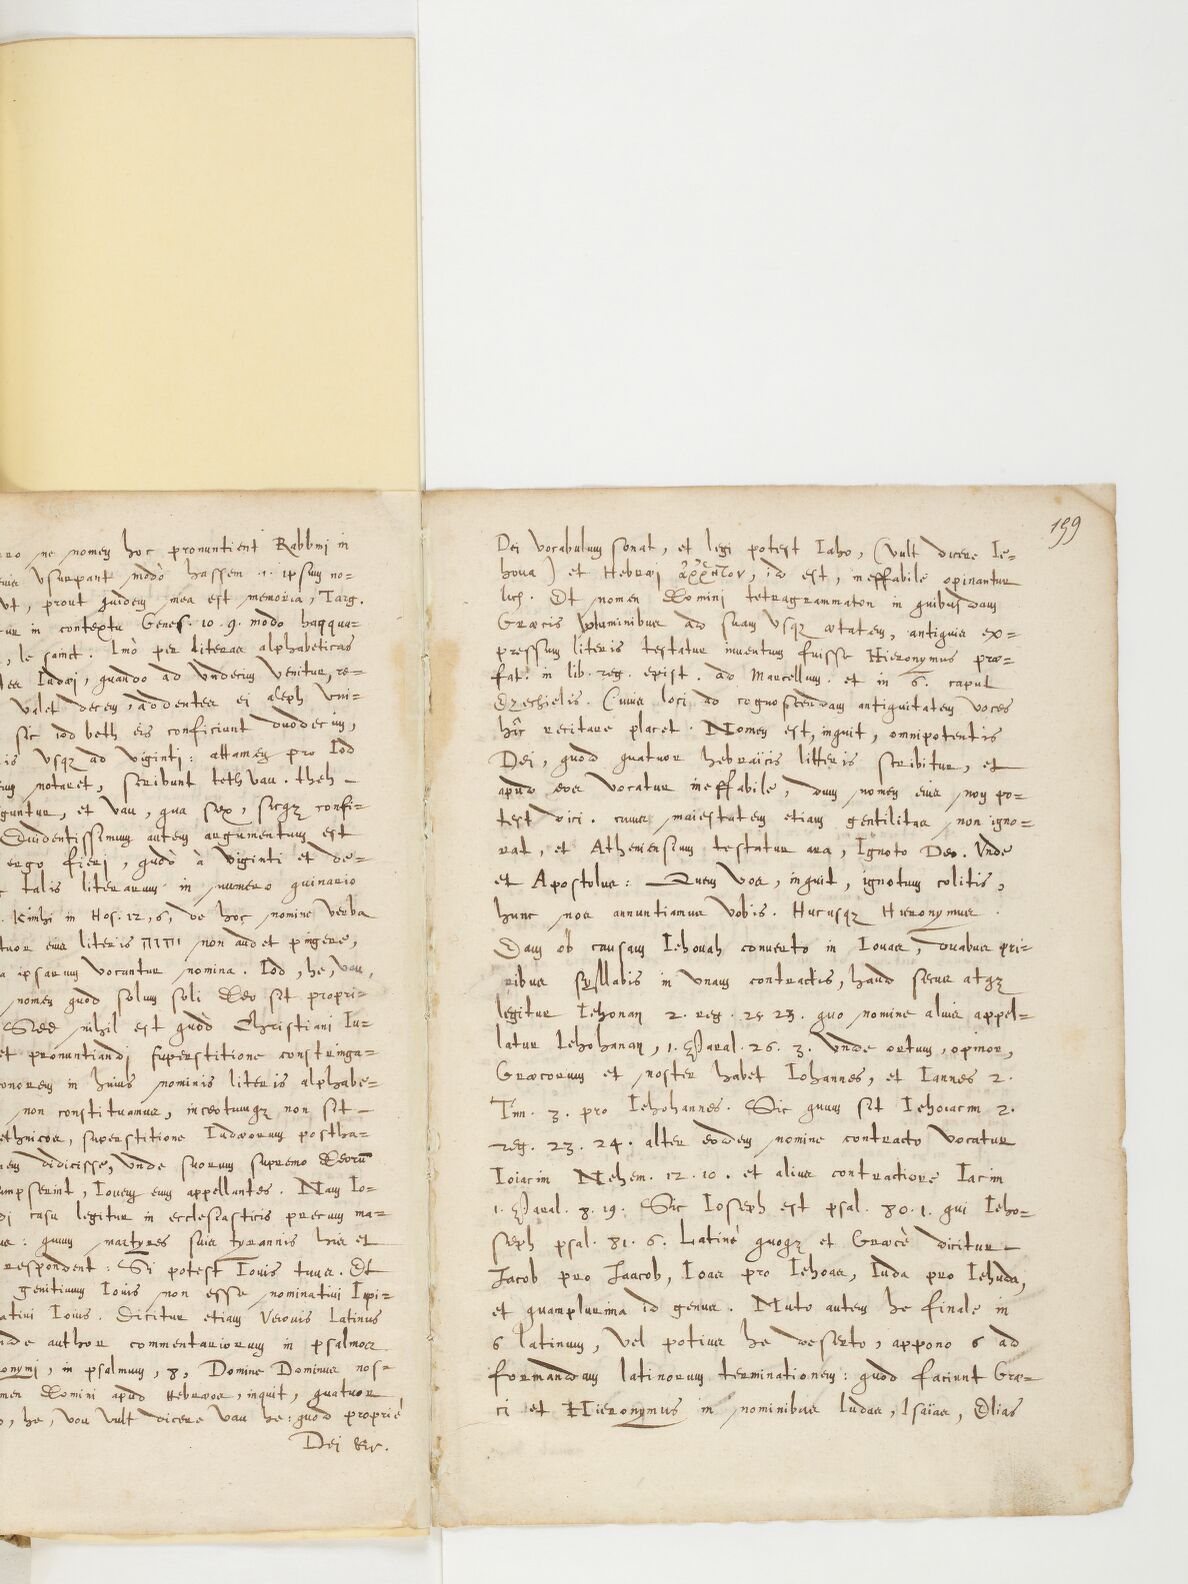 ne nomen hoc pronuntient Rabbini in
usurpant modò hassem .i. ipsum no-
ut, prout quidem mea est memoria, Targ.
tur in contextu Genes. 10. 9. modo haqqua-
, le sanct. Imò per literas alphabeticas
Iudæi, quando ad undecim venitur, re-
valet decem, addentes ei aleph uni-
sic iod beth eis conficiunt duodecim,
is usqz ad viginti: attamen pro Iod
notaret, scribunt teth vau. theh -
guntur, et vau, qua sex, sicqz confi-
Evidentissimum autem argumentum est
ergo fieri, quòd à viginti et de-
talis literarum in numero quinario
. Kimhi in Hos. 12, 6, de hoc nomine verba
tuor eius literis יהוה non audet pingere,
a ipsarum vocantur nomina. Iod, he, vau,
nomen quod solum soli Deo sit propri-
Sed nihil est quòd Christiani Iu-
et pronuntiandi superstitione constringa-
onorem in huius nominis literis alphabe-
non constituamus, incertumqz non sit -
ethnicos, superstitione Iudæorum postha-
didicisse, unde suorum supremo Deorū
umpserint, Iovem eum appellantes. Nam Io-
di casu legitur in ecclesiasticis precum ma-
: quum martyres suis tyrannis his et
respondent: Si potest Iovis tuus. Et
genitivum Iovis non esse nominativi Iupi-
ativi Iovis. Dicitur etiam Veiovis Latinis
nde author commentariorum in psalmos
onymi, in psalmum, 8, Domine Dominus nos-
men Domini apud Hebræos, inquit, quatuor
, he, vou vult dicere vau he: quod propriè
Dei &c.
199
Dei vocabulum sonat, et legi potest Iaho, (vult dicere Ie-
hova) et Hebræi ἄῤῥητον, id est, ineffabile opinantur
lich. Et nomen Domini tetragrammaton in quibusdam
Græcis voluminibus ad suam usqz ætatem, antiquis ex-
pressum literis testatur inventum fuisse Hieronymus præ-
fat. in lib. reg. epist. ad Marcellum. et in 6. caput
Ezechielis. Cuius loci ad cognoscendam antiquitatem voces
hîc recitare placet. Nomen est, inquit, omnipotentis
Dei, quod quatuor hebraïcis litteris scribitur, et
apud eos vocatur ineffabile, dum nomen eius non po-
test dici. cuius maiestatem etiam gentilitas non igno-
rat, et Atheniensium testatur ara, Ignoto Deo. Unde
et Apostolus: Quem vos, inquit, ignotum colitis,
hunc nos annuntiamus vobis. Hucusqz Hieronymus.
Eam ob causam Iehovah converto in Iovas, duabus pri-
oribus syllabis in unam contractis, haud secus atqz
legitur Iehonan 2. reg. 25 23. quo nomine alias appel-
latur Iehohanan, 1. Paral. 26. 3. Unde ortum, opinor,
Græcorum et noster habet Iohannes, et Iannes 2.
Tim. 3. pro Iehohannes. Sic quum sit Iehoiacim 2.
reg. 23. 24. alter eodem nomine contracto vocatur
Ioiacim Nehem. 12. 10. et alius contractiore Iacim
1. Paral. 8. 19. Sic Ioseph est psal. 80. 1. qui Ieho-
seph psal. 81. 6. Latinè quoqz et Græcè dicitur -
Jacob pro Jaacob, Ioas pro Iehoas, Iuda pro Iehuda,
et quamplurima id genus. Muto autem he finale in
s latinum, vel potius he deserto, appono s ad
formandam latinorum terminationem: quod faciunt Græ-
ci et Hieronymus in nominibus Iudas, Isaïas, Elias